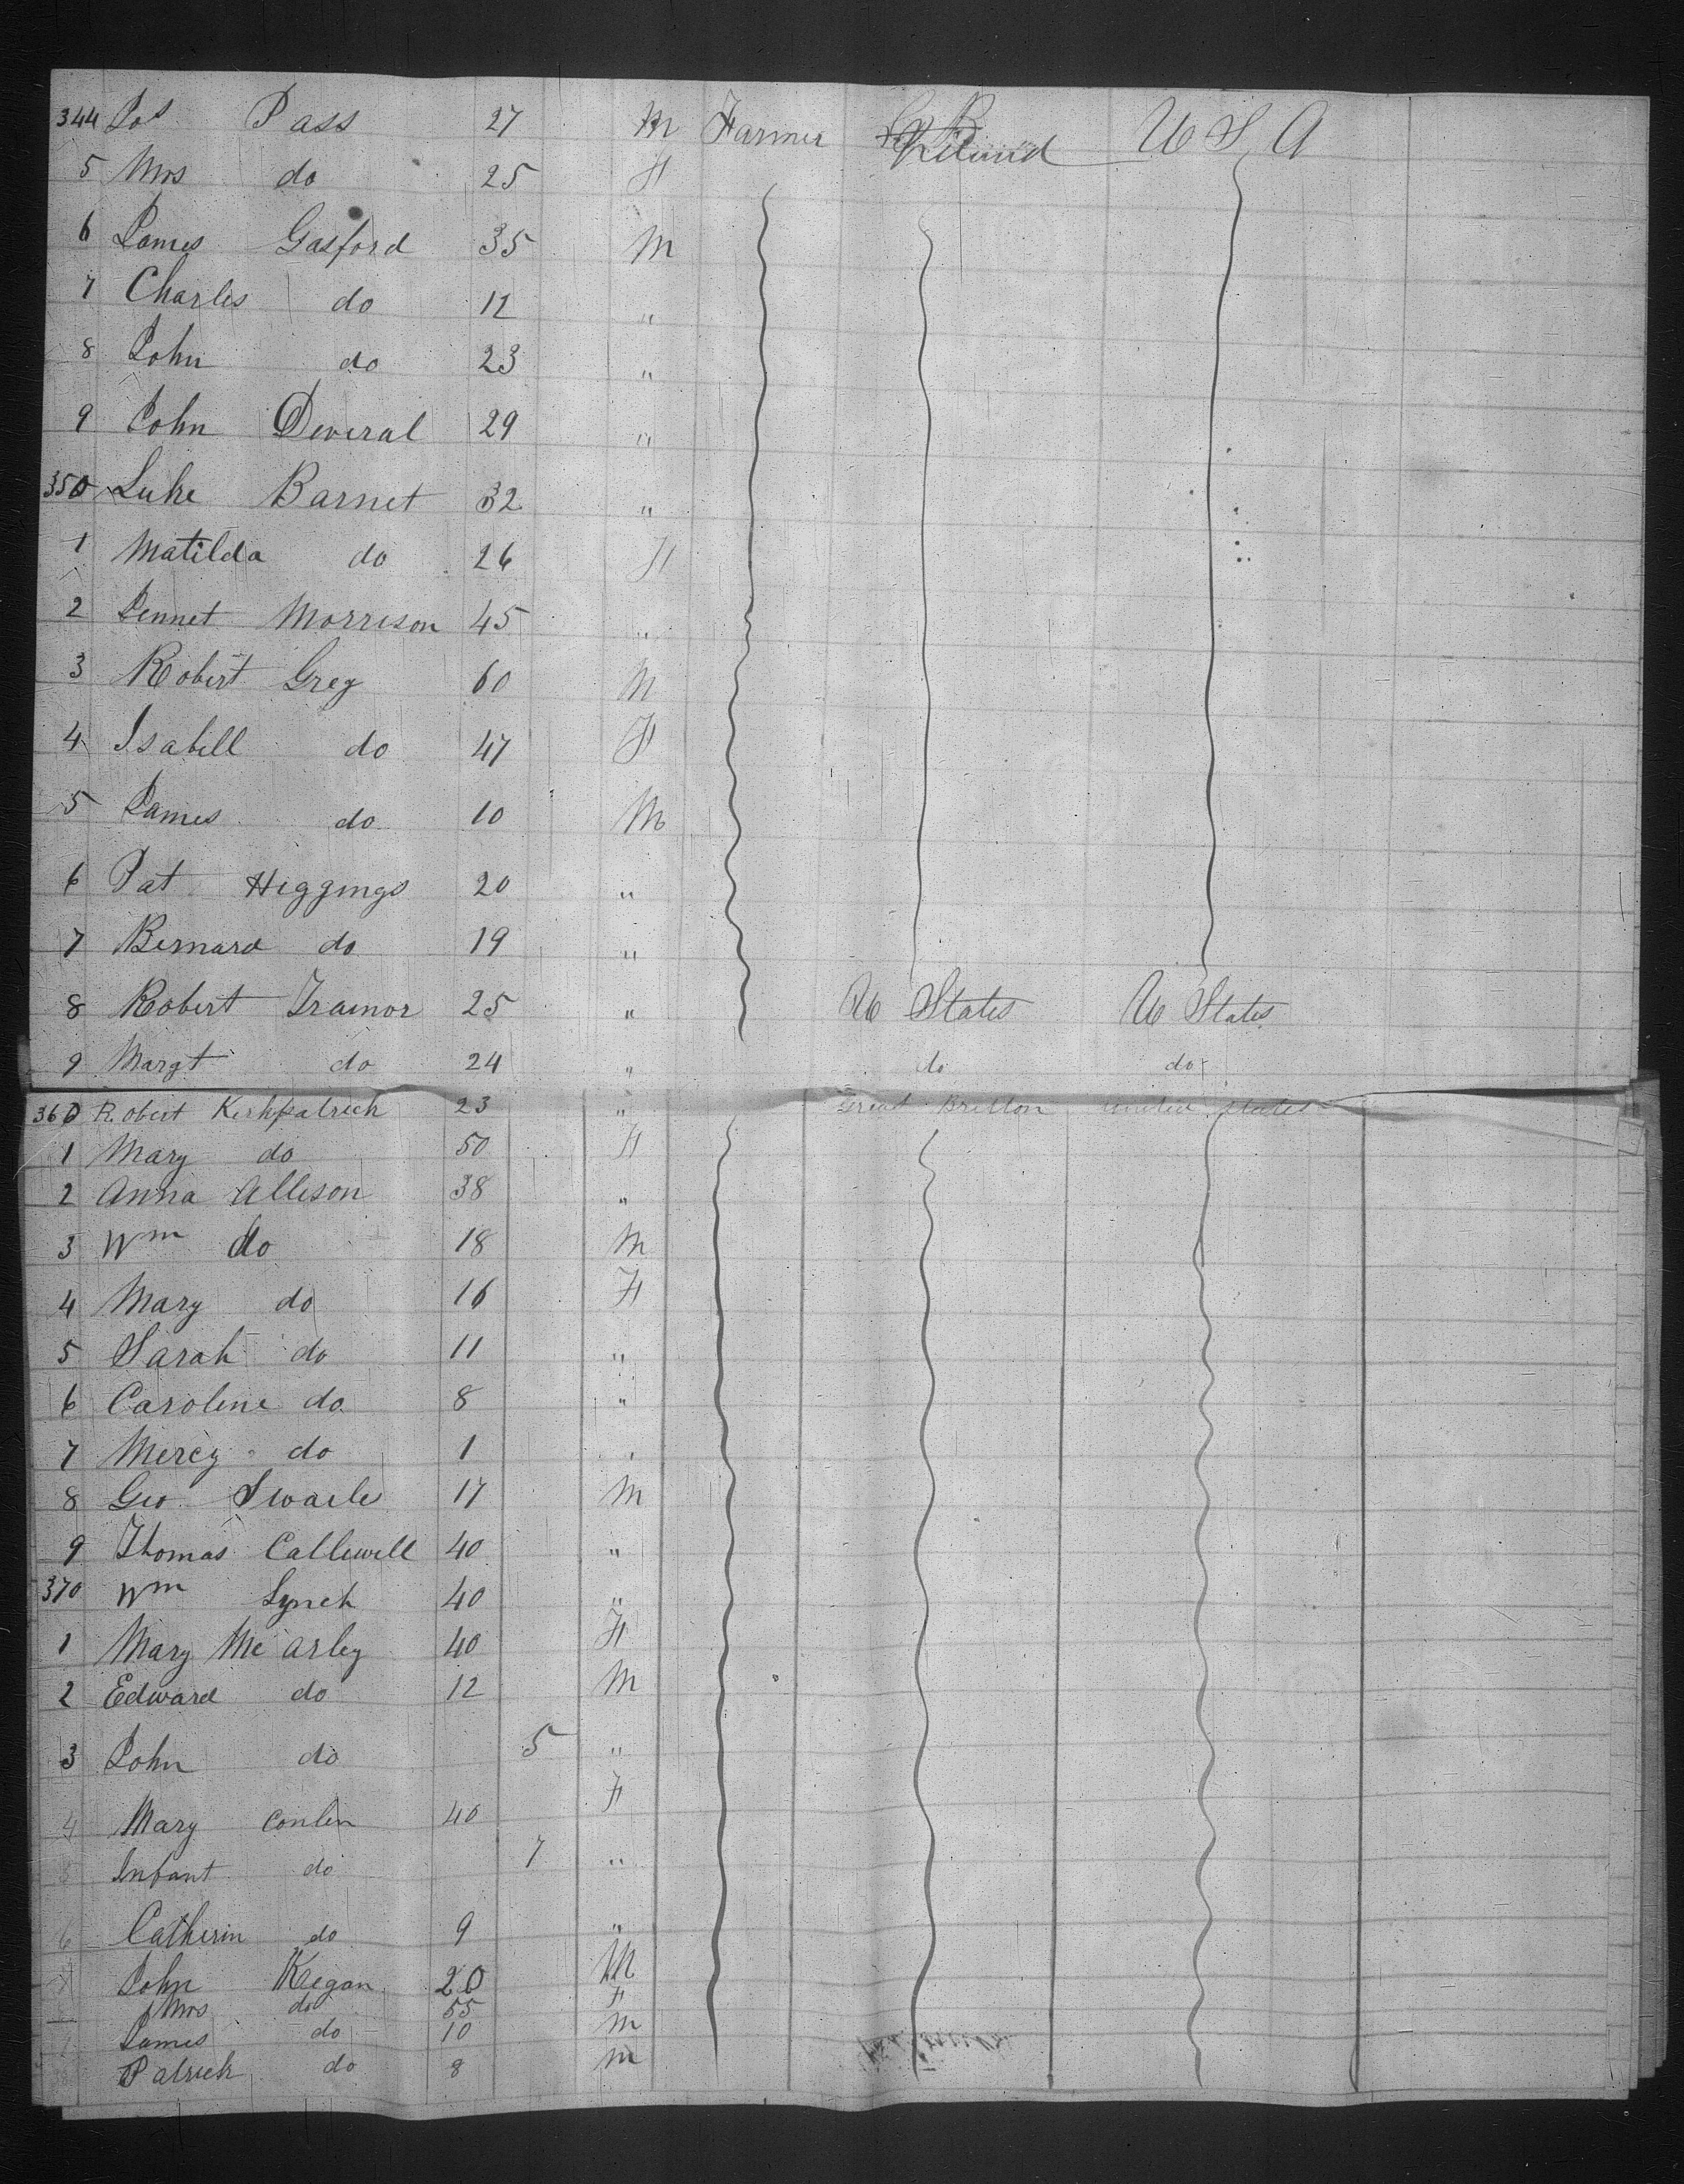 344 Jos Pass 27 M Farmer Ireland U S A
5 Mrs do 25 F
6 James Gasford 35 M
7 Charles do 12 "
8 John do 23 "
9 John Deveral 29 "
350 Luke Barnet 32 "
1 Matilda do 26 F
2 Jennet Morrison 45 "
3 Robert Greg 60 M
4 Isabell do 47 F
5 James do 10 M
6 Pat Higgings 20 "
7 Bernard do 19 "
8 Robert Trainor 25 " U States U States
9 Margt do 24 " do do
360 Robert Kirkpatrick 23 " Great Britton United States
1 Mary do 50 F
2 Anna Allison 38 "
3 Wm do 18 M
4 Mary do 16 F
5 Sarah do 11 "
6 Caroline do 8 "
7 Mercy do 1 "
8 Geo Swails 17 M
9 Thomas Calluwell 40 "
370 Wm Lynch 40 "
1 Mary Mc Arley 40 F
2 Edward do 12 M
3 John do 5 "
4 Mary Conlen 40 F
5 Infant do 7 "
6 Catherin do 9 "
7 John Keegan 20 M
Mrs do 55 F
James do 10 M
Patrick do 8 M